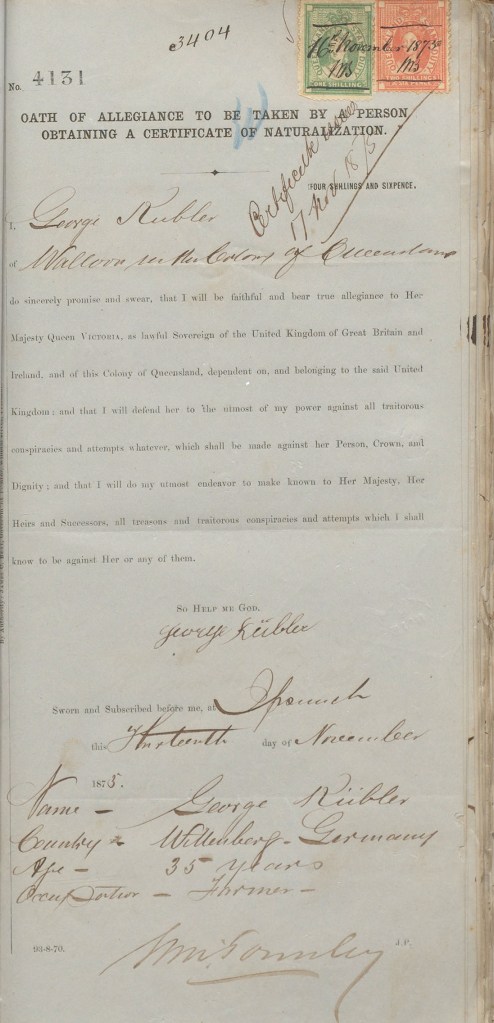 e3404
No. 4131
16th November 1875
ONE SHILLING
TWO SHILLING & SIX PENCE
OATH OF ALLEGIANCE TO BE TAKEN BY A PERSON
OBTAINING A CERTIFICATE OF NATURALIZATION.
Certificate issued
17 Nov 1875
FOUR SHILLINGS AND SIXPENCE.
I, George Kübler
of Walloon in the Colony of Queensland
do sincerely promise and swear, that I will be faithful and bear true allegiance to Her
Majesty Queen VICTORIA, as lawful Sovereign of the United Kingdom of Great Britain and
Ireland, and of this Colony of Queensland, dependent on, and belonging to the said United
Kingdom; and that I will defend her to the utmost of my power against all traitorous
conspiracies and attempts whatever, which shall be made against her Person, Crown, and
Dignity; and that I will do my utmost endeavor to make known to Her Majesty, Her
Heirs and Successors, all treasons and traitorous conspiracies and attempts which I shall
know to be against Her or any of them.
SO HELP ME GOD.
George Kübler
Sworn and Subscribed before me, at Ipswich
this Thirteenth day of November
1875.
Name - George Kübler
Country - Wittenberg - Germany
Age - 35 years
Occupation - Farmer -
93-8-70.
J.P.